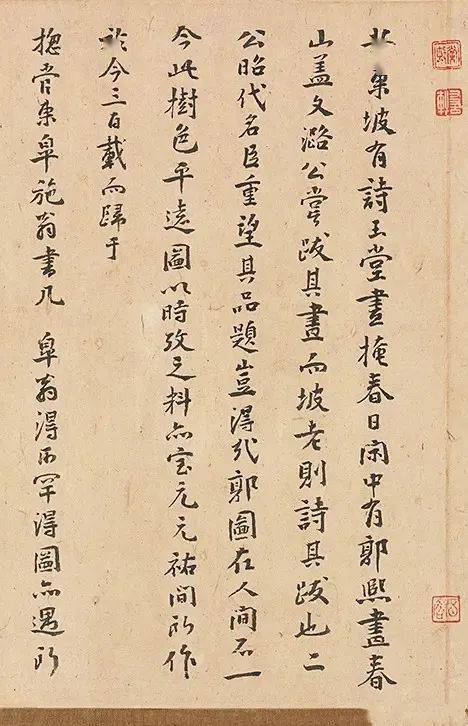 東坡有詩玉堂晝掩春日閑中有郭熙畫春
山蓋文潞公嘗跋其畫而坡老則詩其跋也二
公昭代名臣重望其品題豈得凡郭圖在人間不一
今此樹色平遠圖以時攷之料亦宝元元祐間所作
於今三百載而歸于
捴管東皐施翁書几 皐翁得所罕得圖亦遇所